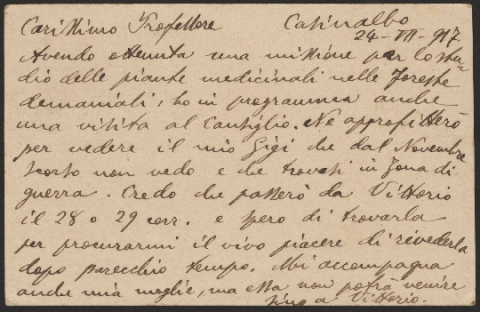 Carissimo Professore Casinalbo
24-VII-917
Avendo ottenuta una missione per lo stu-
dio delle piante medicinali nelle foreste
demaniali, ho in programma anche
una visita al Cansiglio. Ne approfitterò
per vedere il mio Gigi che dal Novembre
scorso non vedo e che trovasi in zona di
guerra. Credo che passerò da Vittorio
il 28 o 29 corr. e spero di trovarla
per procurarmi il vivo piacere di rivederla
dopo parecchio tempo. Mi accompagna
anche mia moglie, ma essa non potrà venire
sino a Vittorio.